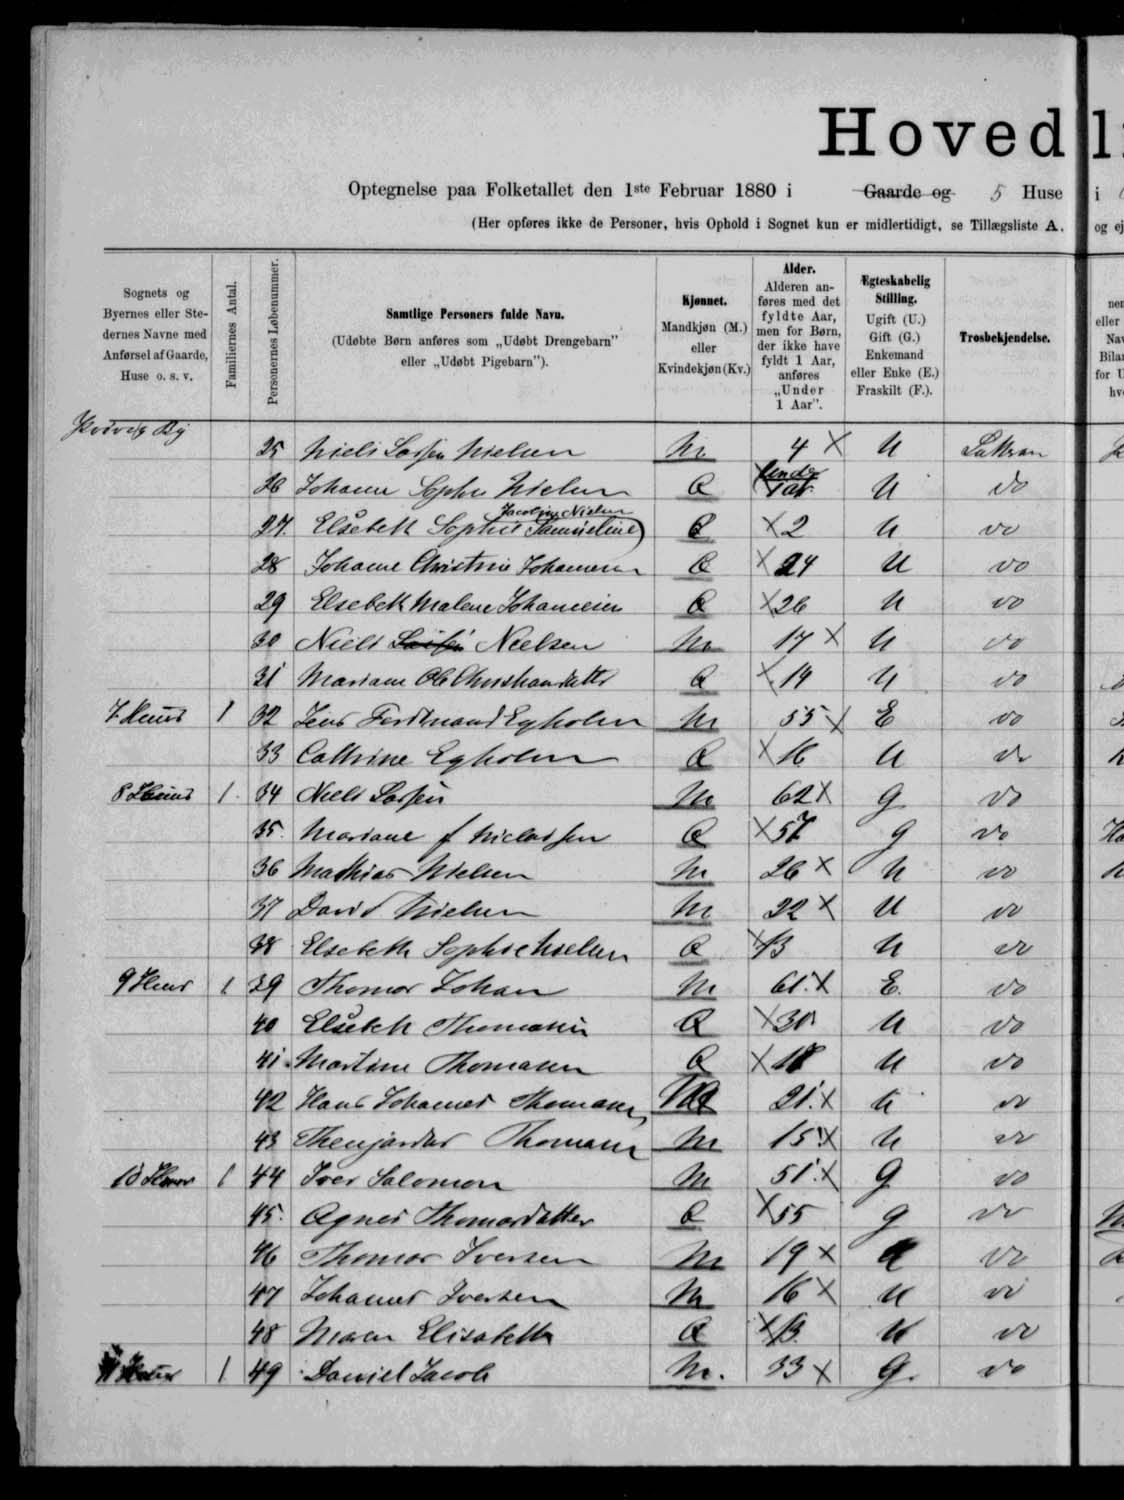 Hovedli
Optegnelse paa Folketallet den 1ste Februar 1880 i Gaarde og 5 Huse i
(Her opføres ikke de Personer, hvis Ophold i Sognet kun er midlertidigt, se Tillægsliste A. og ej
Sognets og Byernes eller Stedernes Navne med Anførsel af Gaarde, Huse o. s. v.
Familiernes Antal.
Personernes Løbenummer.
Samtlige Personers fulde Navn.
(Udøbte Børn anføres som „Udøbt Drengebarn"
eller „Udøbt Pigebarn").
Kjønnet.
Mandkjøn (M.)
eller
Kvindekjøn (Kv.)
Alder.
Alderen anføres med det fyldte Aar, men for Børn, der ikke have fyldt 1 Aar, anføres „Under 1 Aar".
Ægteskabelig Stilling.
Ugift (U.)
Gift (G.)
Enkemand eller Enke (E.)
Fraskilt (F.).
Trosbekjendelse.
By
25 Niels Larsen Nielsen M 4 X U
26 Johanne Sophie Nielsen Q Under 1 Aar U do
Jacobine Nielsen
27. Elsebeth Sophie Samueline Q X 2 U do
28 Johanne Christine Johannesen Q X 24 U do
29 Elsebeth Malene Johannesen Q X 26 U do
30 Niels Nielsen M 17 X U do
31 Mariane Ole Christiandatter Q X 19 U do
7 Huus 1 32 Jens Ferdinand Egholm M 55 X E do
33 Cathrine Egholm Q X 16 U do
8 Huus 1. 34 Niels Larsen M 62 X G do
35. Mariane f Niclassen Q X 57 G do
36 Mathias Nielsen M 26 X U do
37 David Nielsen M 22 X U do
38 Elsebeth Sophie Nielsen Q X 13 U do
9 Huus 1 39 Thomas Johan M 61. X E. do
40 Elsebeth Thomasen Q X 30 U do
41. Martine Thomasen Q X 18 U do
42 Hans Johannes Thomasen M 21. X U do
43 Thomasen M 15 X U do
10 Huus 1 44 Iver Salomon M 51. X G do
45. Agnes Thomasdatter Q X 55 G do
46 Thomas Iversen M 19 X U do
47 Johannes Iversen M 16 X U do
48 Maren Elisabeth Q X 13. U do
11 Huus 1 49 Daniel Jacob M. 33 X G. do